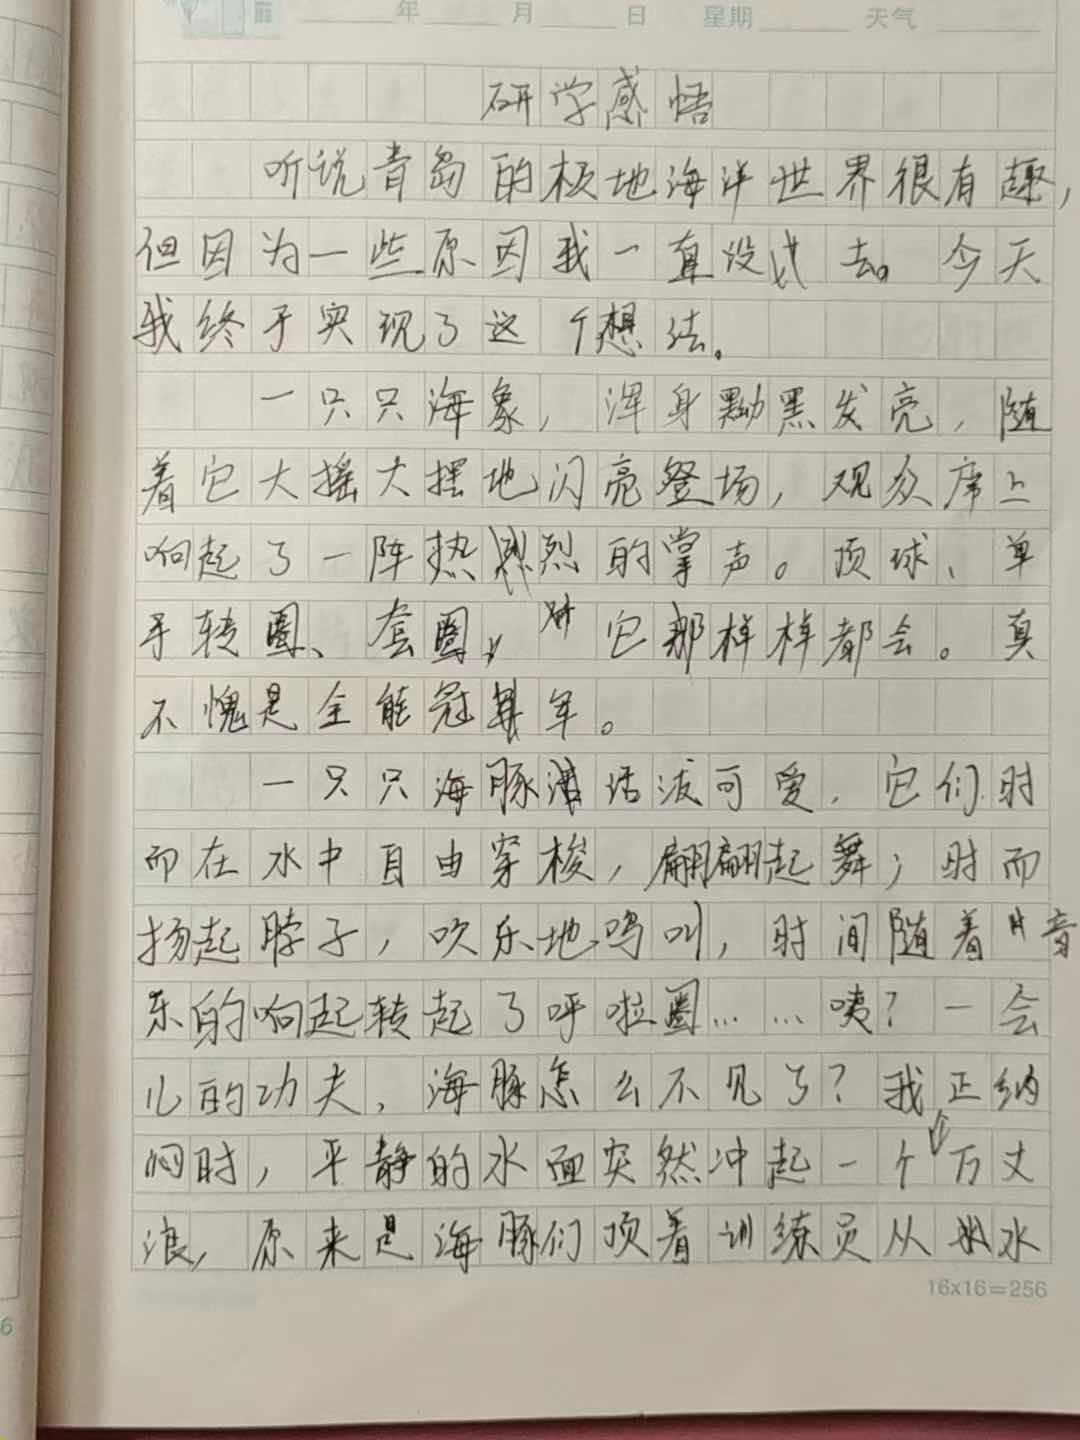 年 月 日 星期 天气
研学感悟
听说青岛的极地海洋世界很有趣，
但因为一些原因我一直没 去。今天
我终于实现了这个想法。
一只只海象，浑身黝黑发亮，随
着它大摇大摆地闪亮登场，观众席上
响起了一阵热烈的掌声。顶球、单
手转圈、套圈， 它那样样都会。真
不愧是全能冠军。
一只只海豚活泼可爱，它们时
而在水中自由穿梭，翩翩起舞；时而
扬起脖子，欢乐地鸣叫，时间随着音
乐的响起转起了呼啦圈……咦？一会
儿的功夫，海豚怎么不见了？我正纳
闷时，平静的水面突然冲起一个万丈
浪，原来是海豚们顶着训练员从水
16x16=256
6